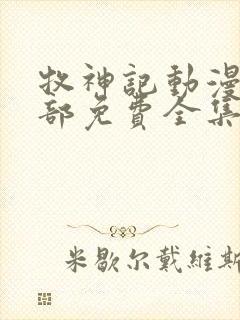 牧神記動漫
部免費全集
米歇尔戴維斯